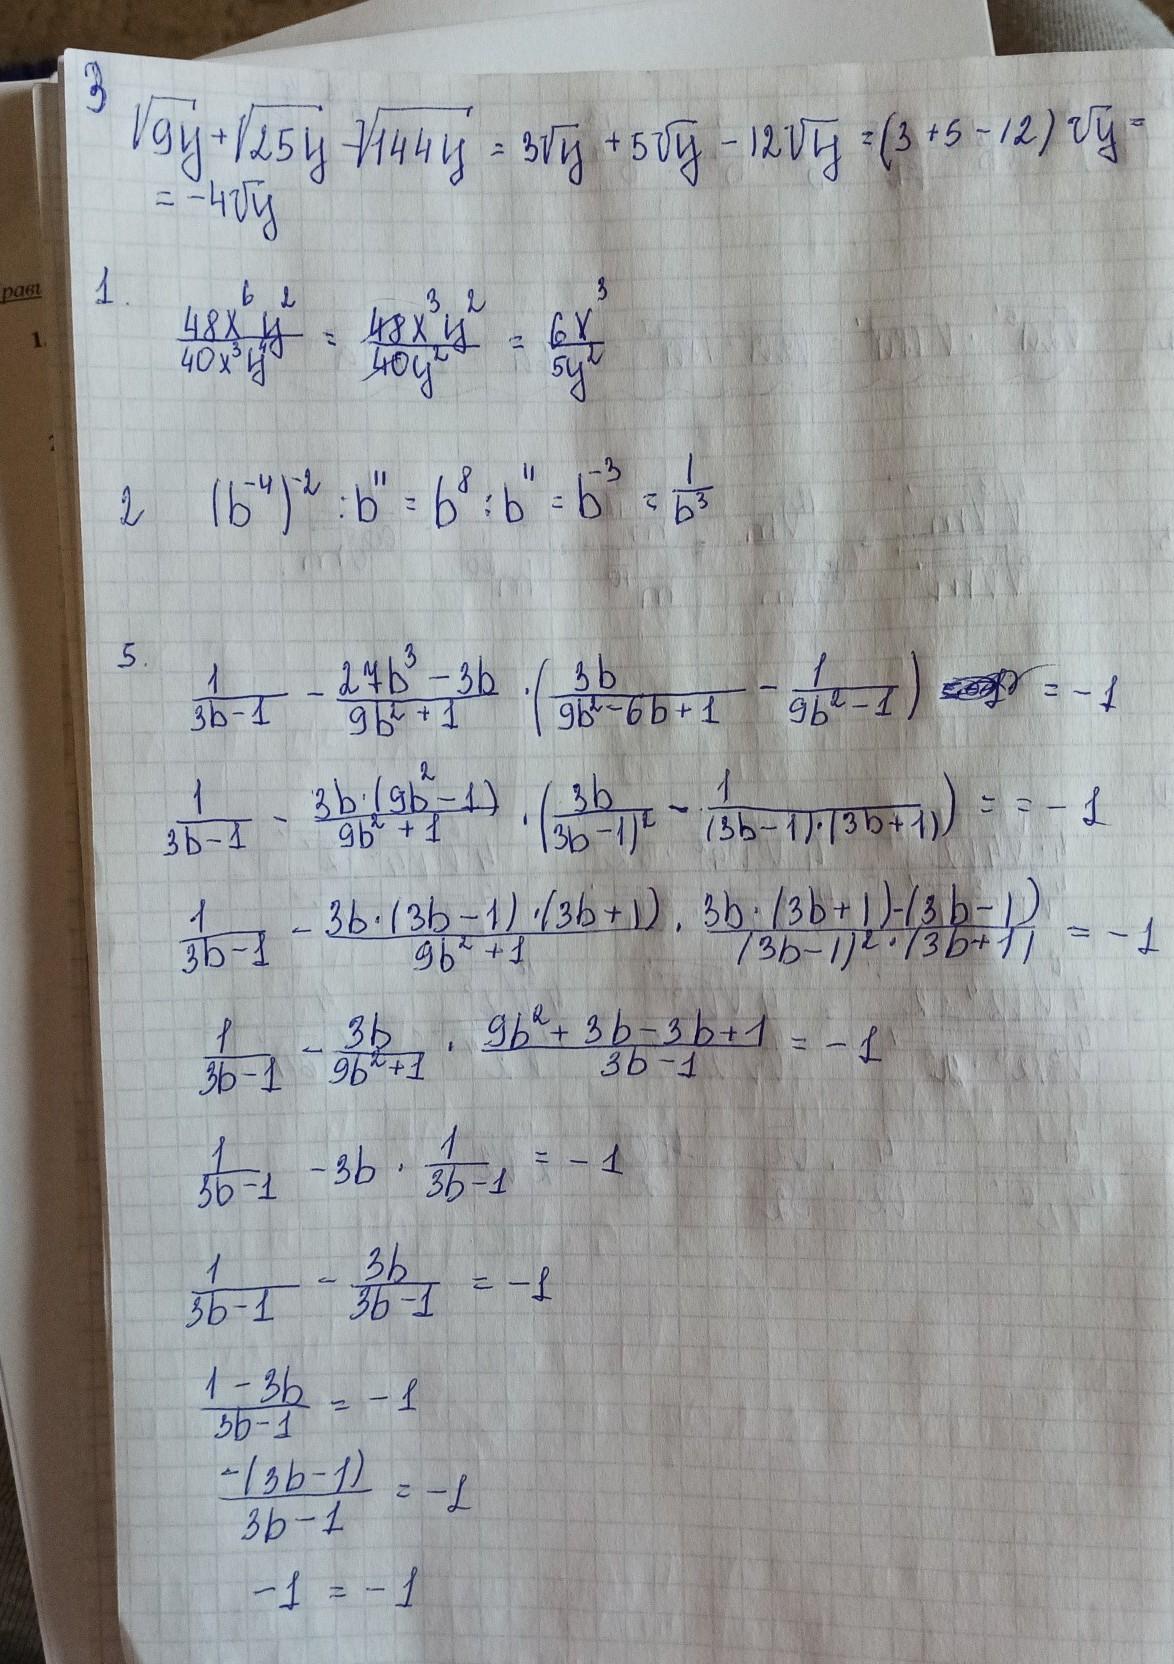 3
√9y + √25y - √144y = 3√y + 5√y - 12√y = (3 + 5 - 12) √y =
= -4√y
1.
48x⁶y²/40x³y⁴ = 48x³y²/40y² = 6x³/5y²
2 (b⁻⁴)⁻² : b¹¹ = b⁸ : b¹¹ = b⁻³ = 1/b³
5.
1/(3b-1) - (27b³-3b)/(9b²+1) · (3b/(9b²-6b+1) - 1/(9b²-1)) = -1
1/(3b-1) - 3b·(9b²-1)/(9b²+1) · (3b/3b-1)² - 1/((3b-1)·(3b+1))) = = -1
1/(3b-1) - 3b·(3b-1)·(3b+1)/(9b²+1) · (3b·(3b+1)-(3b-1))/((3b-1)²·(3b+1)) = -1
1/(3b-1) - 3b/(9b²+1) · (9b²+3b-3b+1)/(3b-1) = -1
1/(3b-1) - 3b · 1/(3b-1) = -1
1/(3b-1) - 3b/(3b-1) = -1
(1-3b)/(3b-1) = -1
-(3b-1)/(3b-1) = -1
-1 = -1
1.